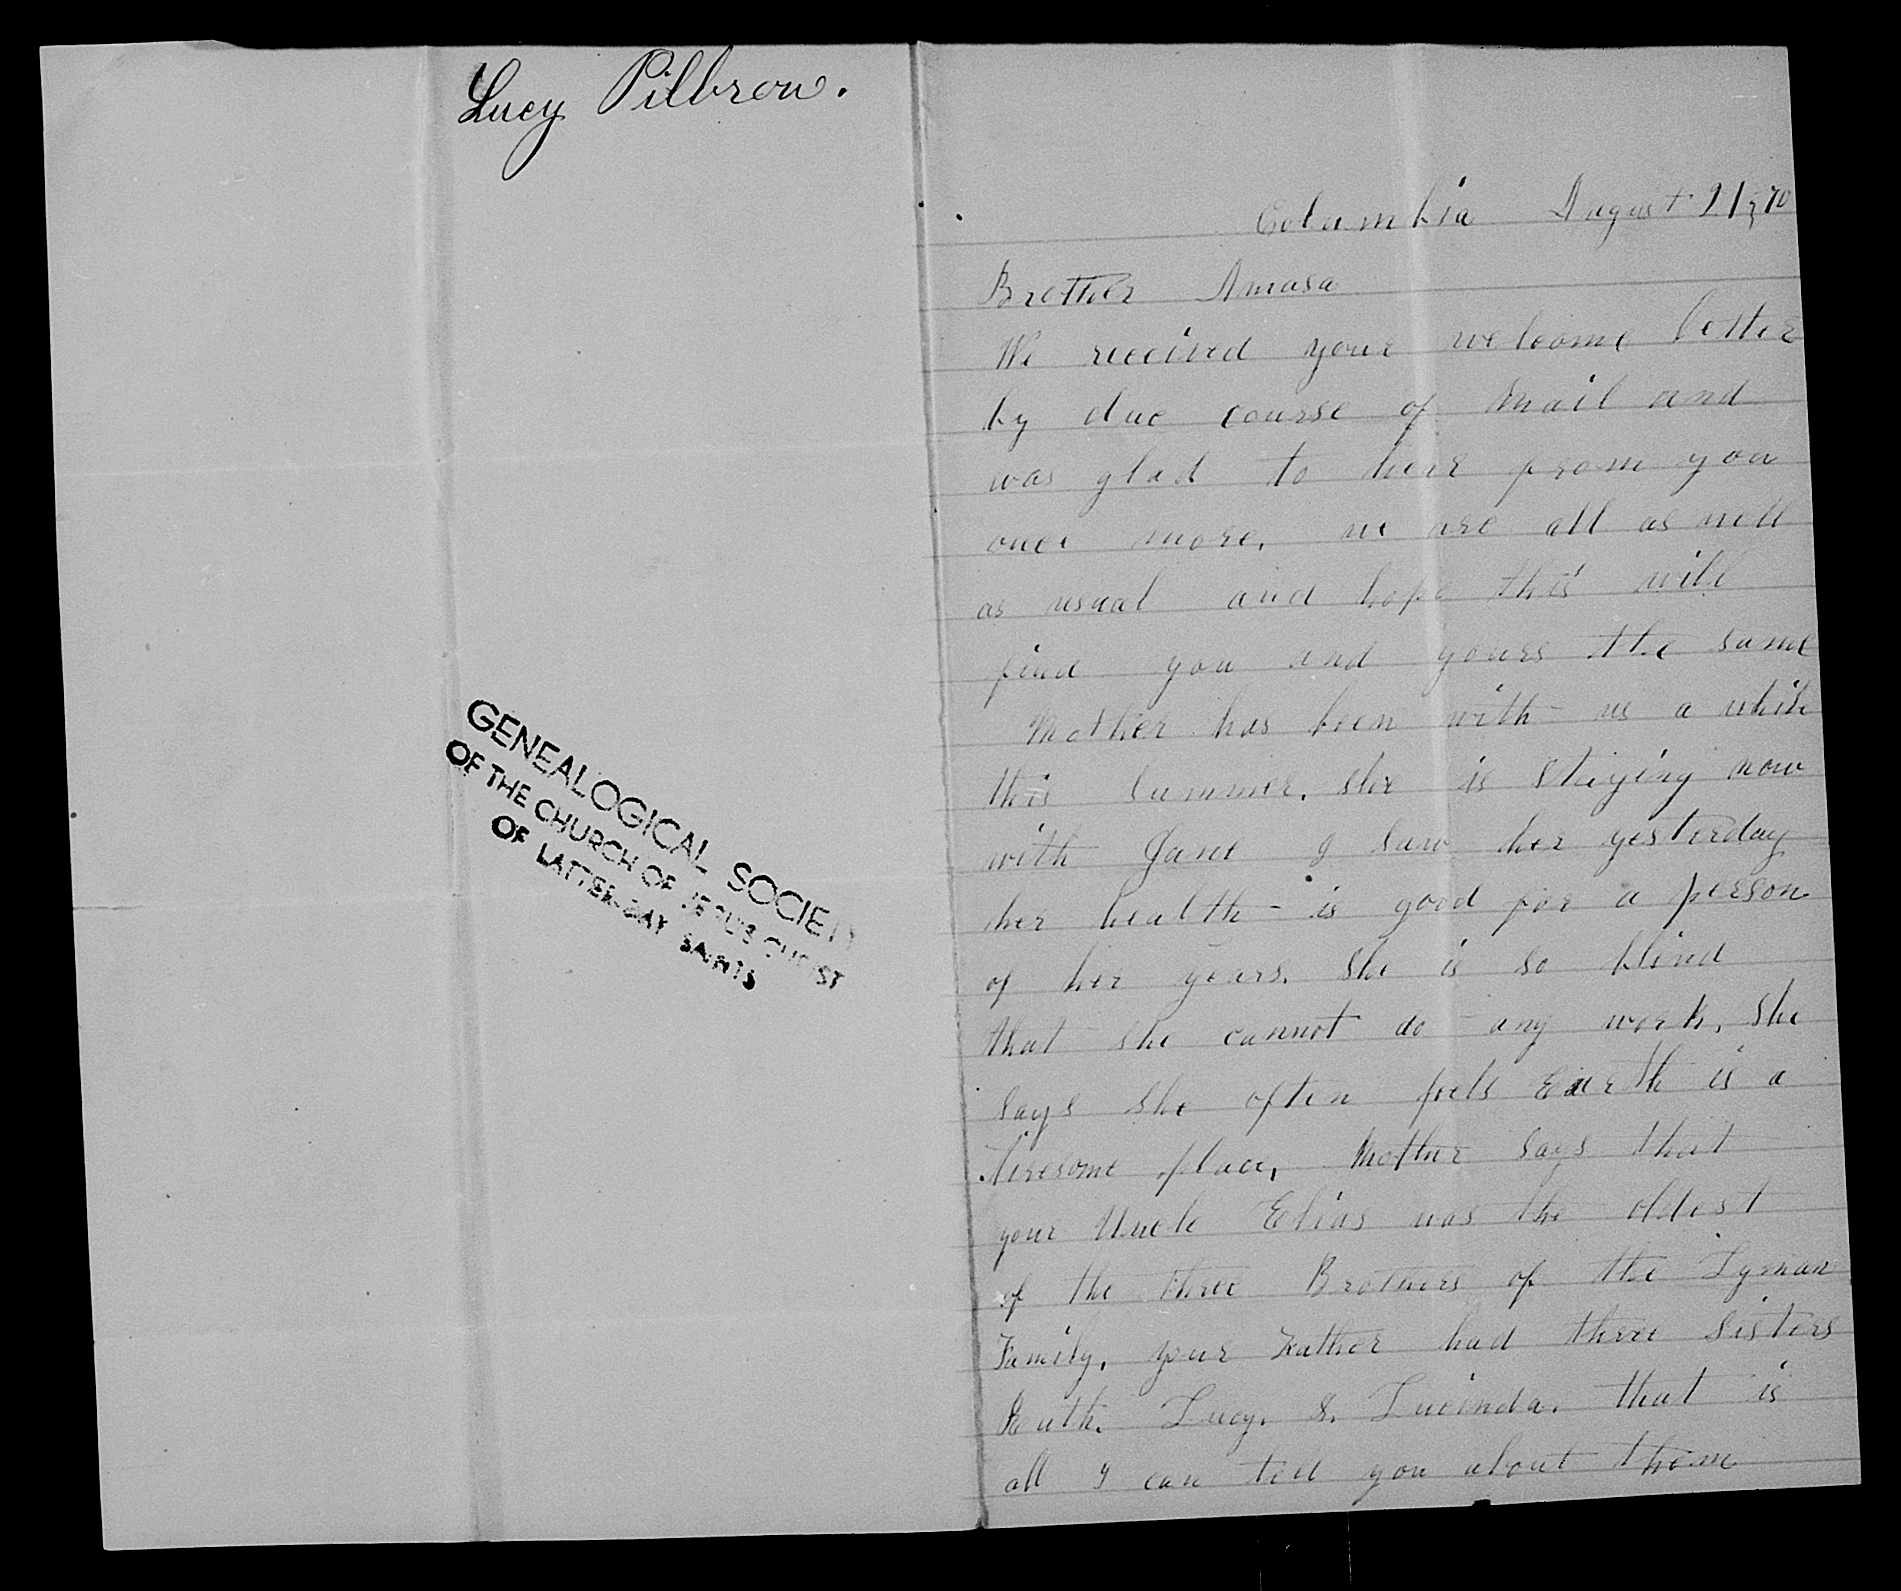 Lucy Pilbrow.
GENEALOGICAL SOCIETY
OF THE CHURCH OF JESUS CHRIST
OF LATTER-DAY SAINTS
Columbia August 21, 70
Brother Amasa
We received your welcome letter
by due course of Mail and
was glad to hear from you
once more, we are all as well
as usual and hope this will
find you and yours the same
Mother has been with us a while
this Summer, she is Staying now
with Jane I saw her yesterday
her health - is good for a person
of her years. She is so blind
that she cannot do any work, She
says she often feels Earth is a
tiresome place, Mother says that
your Uncle Elias was the oldest
of the three Brothers of the Lyman
Family, your Father had three sisters
Ruth. Lucy. &. Lucinda. that is
all I can tell you about them